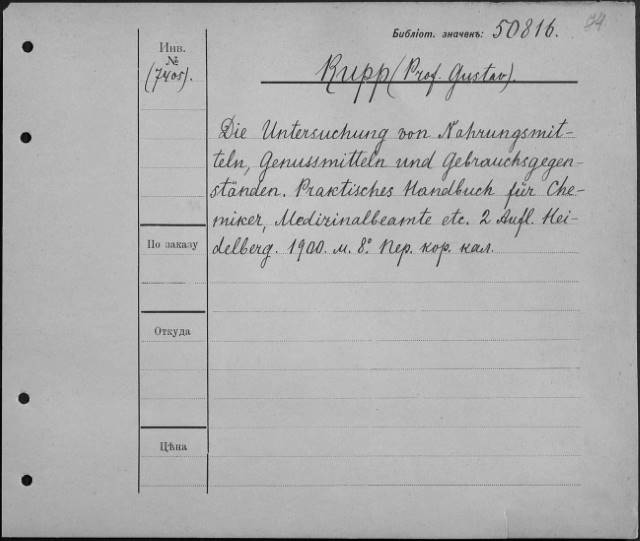 Библіот. значекъ: 50816. 94
Инв.
№
(7405).
Rupp (Prof. Gustav).
Die Untersuchung von Nahrungsmit-
teln, Genussmitteln und Gebrauchsgegen-
ständen. Praktisches Handbuch für Che-
miker, Medizinalbeamte etc. 2 Aufl. Hei-
delberg. 1900. м. 8º Пер. кор. кал.
По заказу
Откуда
Цѣна